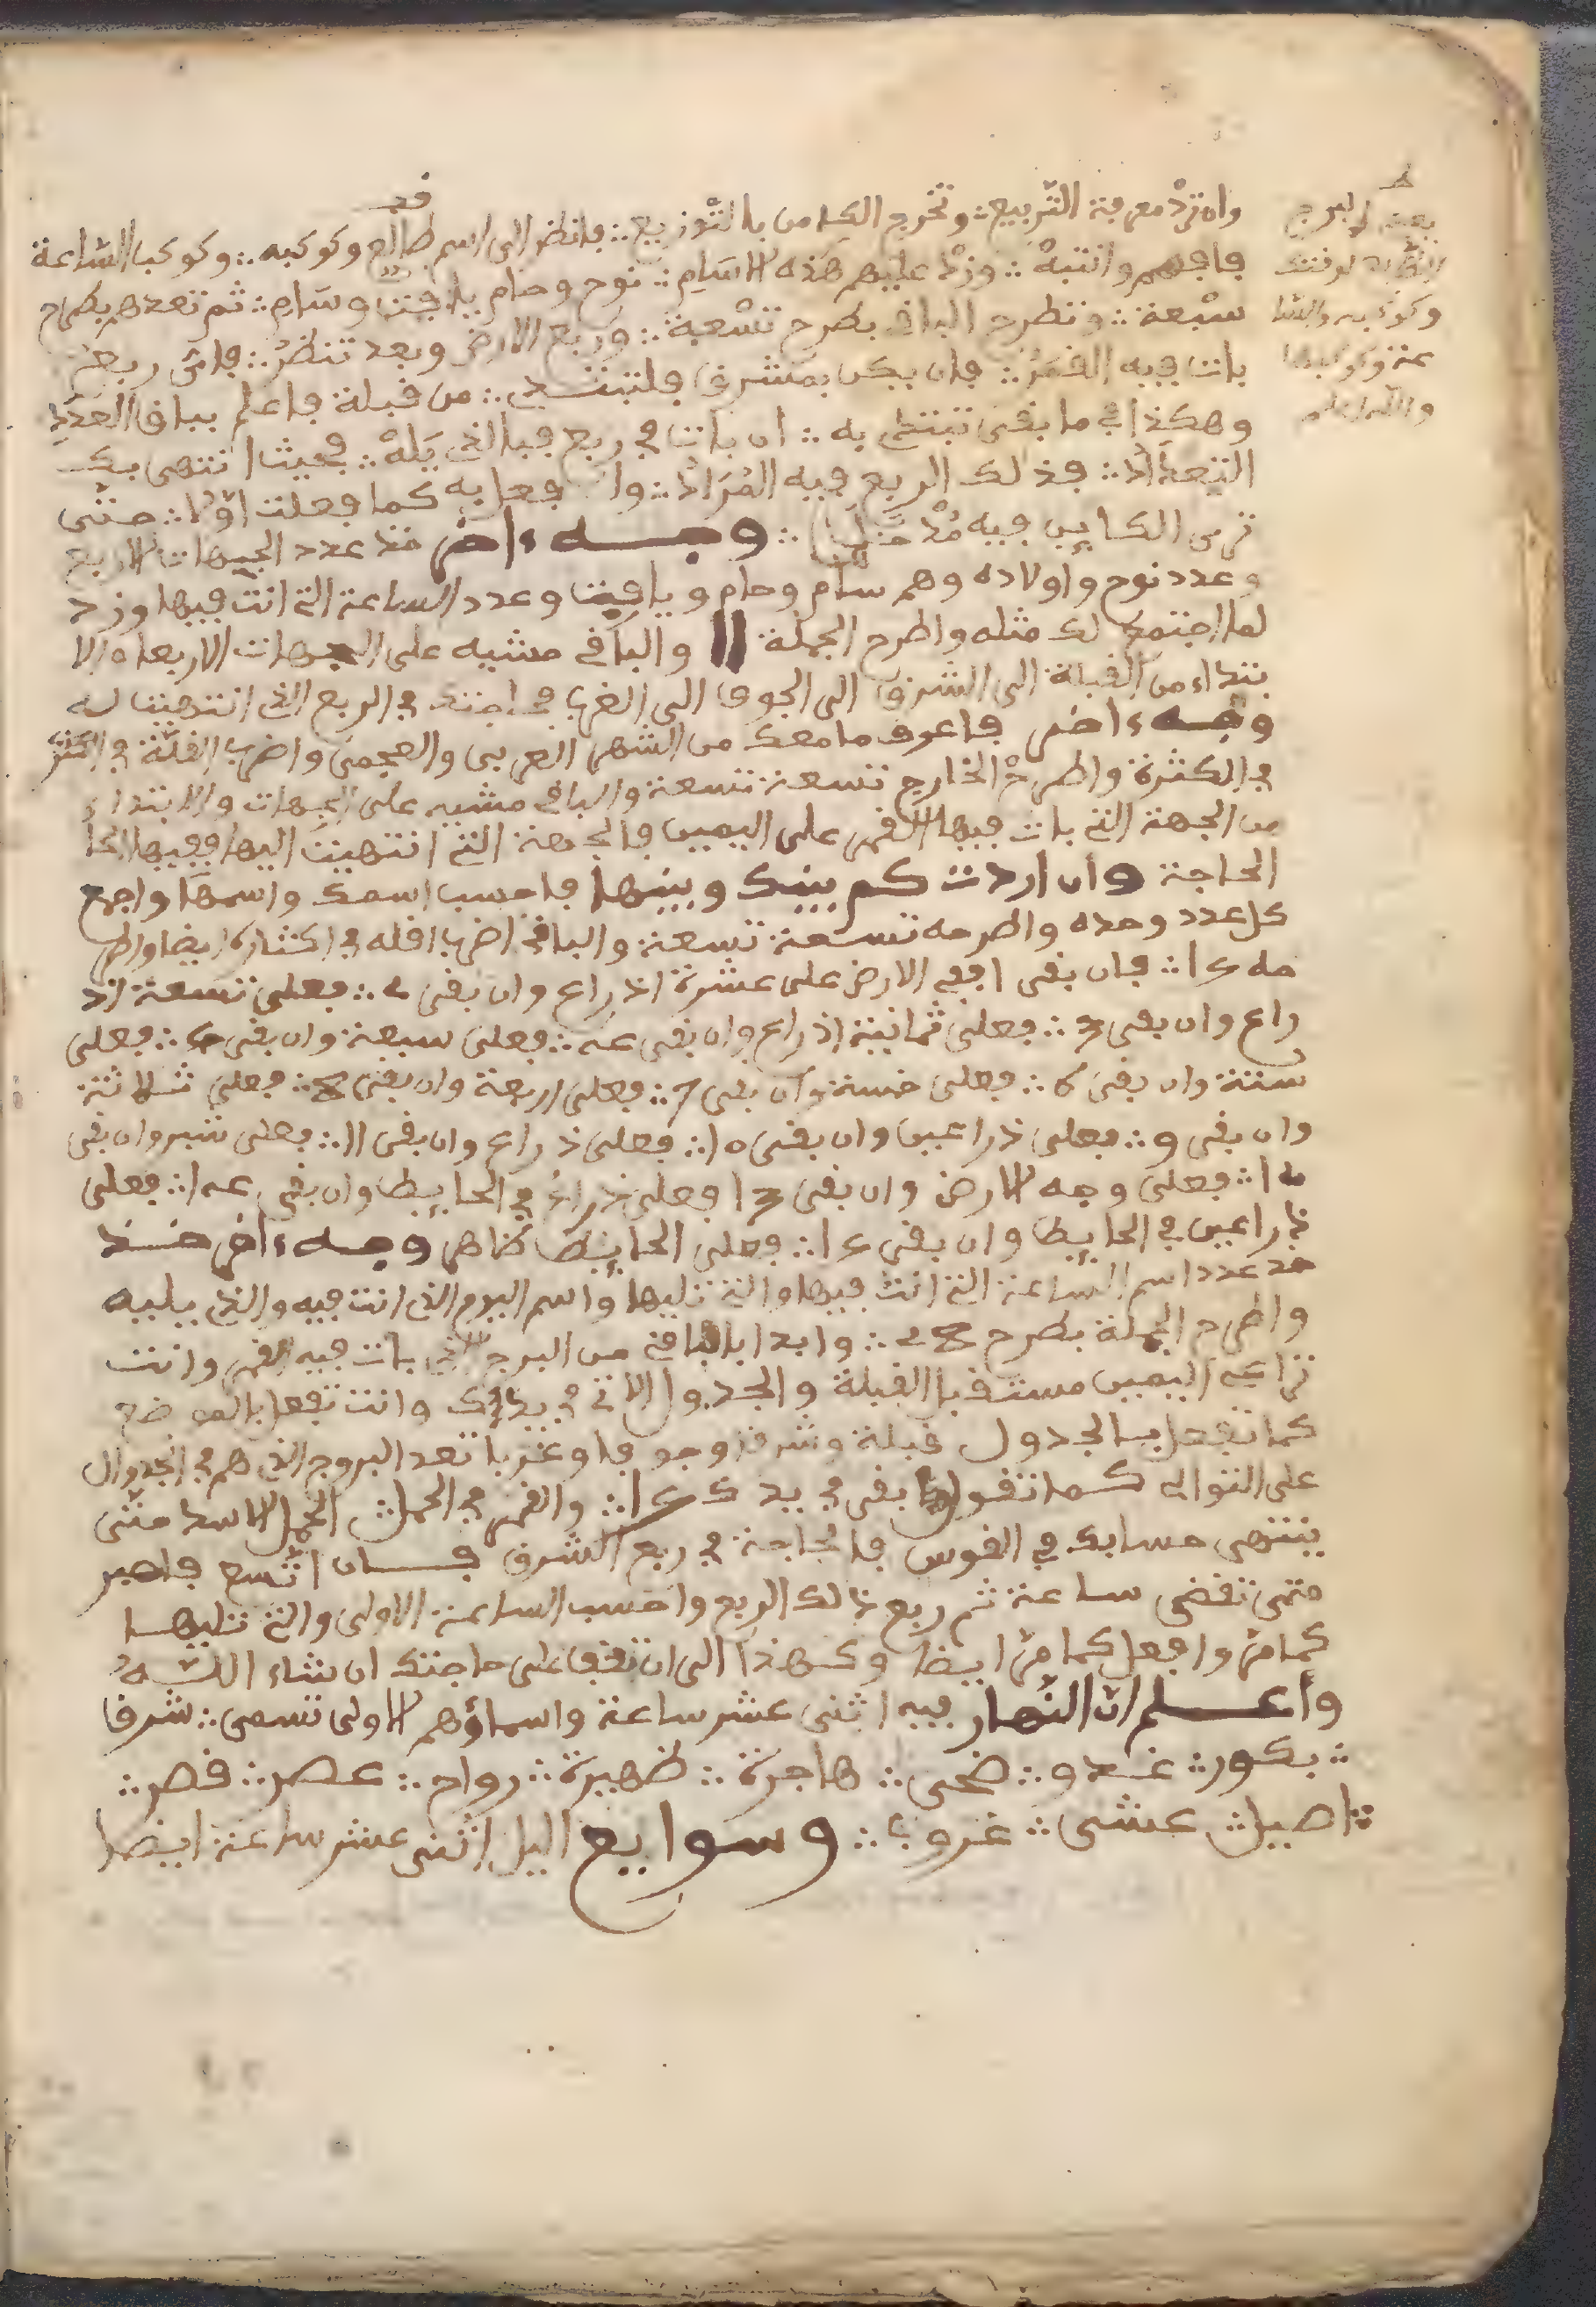 وان ترد معرفة التربيع ∴ وتخرج الكامن بالتوزيع ∴ فانظر الى اسم طالع وكوكبه ∴ وكوكب الساعة
فافهم وانتبه ∴ وزد عليهم هذه الاسام ∴ نوح وحام يافت وسام ∴ ثم تعدهم بطرح
سبعة ∴ وتطرح الباقي بطرح تسعة ∴ وربع الارض وبعد تنظر ∴ فاي ربع
بات فيه القمر ∴ فان يكن بمشرق فلتبتدي ∴ من قبلة فاعلم بباقي العدد
وهكذا في ما بقى تبتدي به ∴ ان بات في ربع فبالذي يله ∴ فحيث انتهى بك
التعداد ∴ فذلك الربع فيه المراد ∴ وافعل به كما فعلت اولا ∴ حتى
ترى الكاين فيه ∴ وجه ءاخر خذ عدد الجيهات الاربع
وعدد نوح واولاده وهم سام وحام ويافيت وعدد الساعة التي انت فيها وزد
لما اجتمع لك مثله واطرح الجملة 11 والباقي مشيه على الجهات الاربعة والا
بتداء من القبلة الى الشرق الى الجوف الى الغرب في الربع الذي انتهيت له
وجه ءاخر فاعرف ما معك من الشهر العربي والعجمي واضرب القلة في الكثر
في الكثرة واطرح الخارج تسعة تسعة والباقي مشيه على الجهات والابتداء
من الجهة التي بات فيها القمر على اليمين فالجهة التي انتهيت اليها ففيها الحا
الحاجة وان اردت كم بينك وبينها فاحسب اسمك واسمها واجمع
كل عدد وحده واطرحه تسعة تسعة والباقي اضرب اقله في اكثاره ايضا واطر
حه 15 ∴ فان بقى 1 ففي الارض على عشرة اذراع وان بقى 2 ∴ فعلى تسعة اذ
راع وان بقى 3 ∴ فعلى ثمانية اذراع وان بقى 4 ∴ فعلى سبعة وان بقى 5 ∴ فعلى
ستة وان بقى 6 ∴ فعلى خمسة وان بقى 7 ∴ فعلى اربعة وان بقى 8 ∴ فعلى ثلاثة
وان بقى 9 ∴ فعلى ذراعين وان بقى 10 ∴ فعلى ذراع وان بقى 11 ∴ فعلى شبر وان بقى
12 ∴ فعلى وجه الارض وان بقى 13 فعلى ذراع في الحايط وان بقى 14 ∴ فعلى
ذراعين في الحايط وان بقى 15 ∴ فعلى الحايط ظاهر وجه ءاخر خذ
خذ عدد اسم الساعة التي انت فيها والتي تليها واسم اليوم الذي انت فيه والذي يليه
واطرح الجملة بطرح 28 ∴ وابدا بالباقي من البرج الذي بات فيه القمر وانت
تراعي اليمين مستقبل القبلة والجدول الاتي في يدك وانت تفعل بالموضع
كما تفعل بالجدول قبلة وشرقا وجوفا وغربا تعد البروج الذي هم في الجدوال
على التوالي كما تقول بقى في يدك 15 ∴ والقمر في الحمل ∴ الحمل الاسد حتى
ينتهي حسابك في القوس فالحاجة في ربع الشرق فان اتسع فاصبر
حتى تقضى ساعة ثم ربع ذلك الربع واحسب الساعة الاولى والتي تليها
كما مر وافعل كما مر ايضا وكهذا الى ان تقف على حاجتك ان شاء الله
وأعلم ان النهار فيه اثنى عشر ساعة واسماؤهم الاولى تسمى ∴ شرق
∴ بكور ∴ غدو ∴ ضحى ∴ هاجرة ∴ ظهيرة ∴ رواح ∴ عصر ∴ قصر ∴
∴ اصيل ∴ عشى ∴ غروب ∴ وسوايع اليل اثنى عشر ساعة ايضا
وكوكبه والسا
عة وكوكبها
والله اعلم